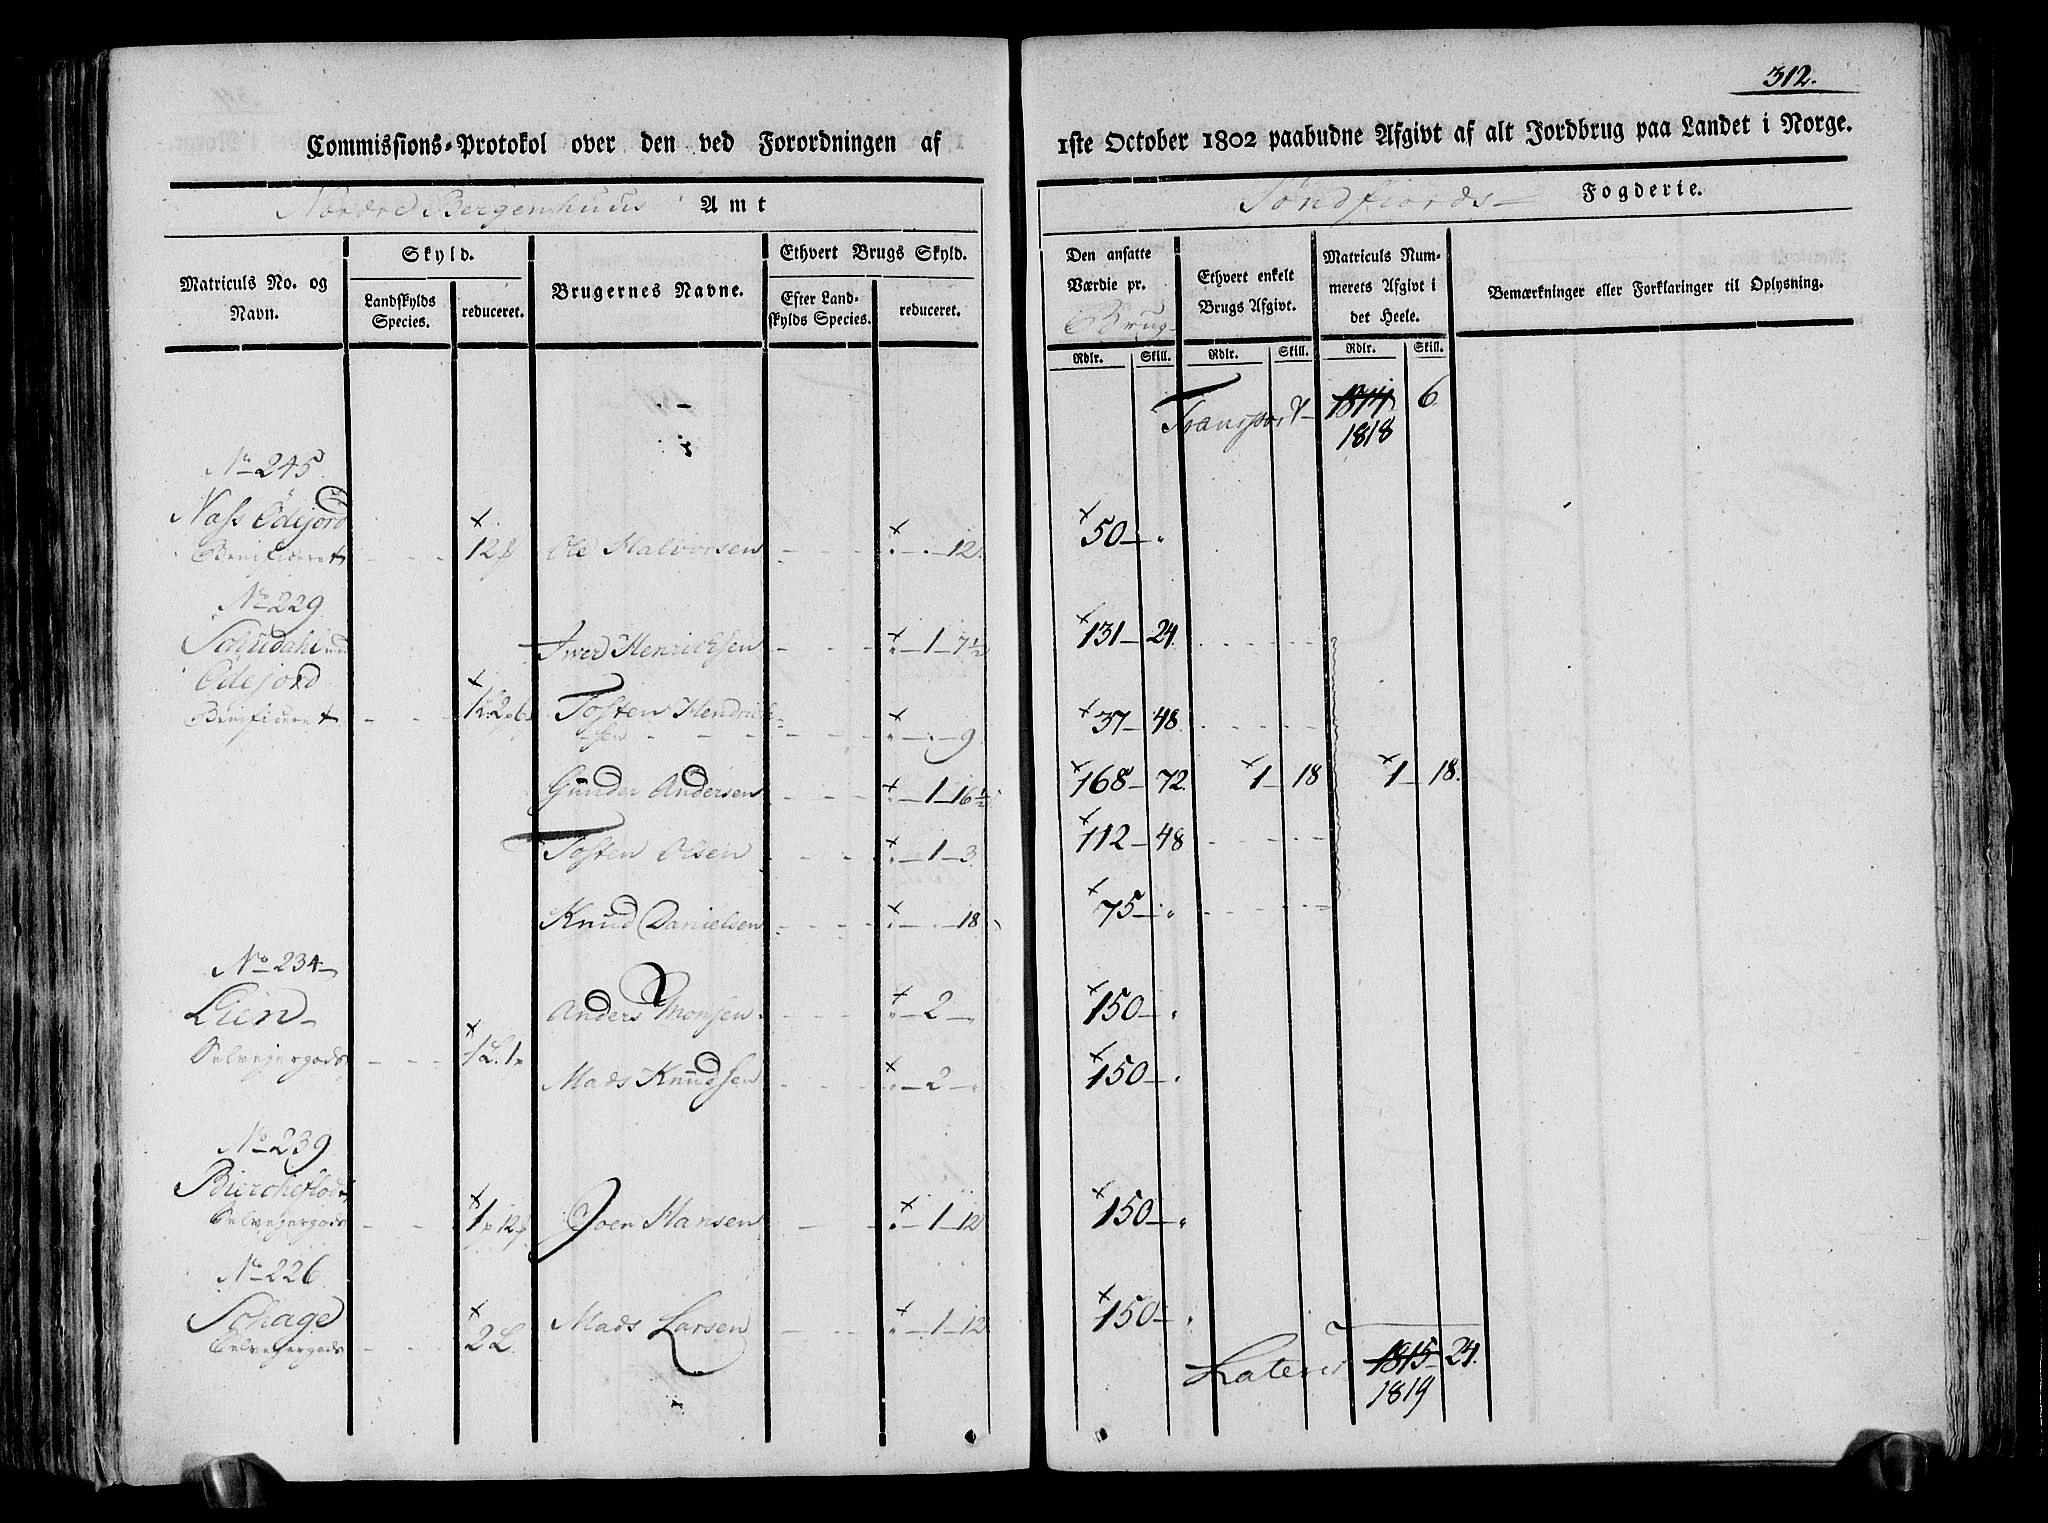 312.
Commissions-Protokol over den ved Forordningen af 1ste October 1802 paabudne Afgivt af alt Jordbrug paa Landet i Norge.
Nordre Bergenhuus Amt
Søndfiords Fogderie.
Matriculs No. og Navn.
Skyld.
Landskylds Species.
reduceret.
Brugernes Navne.
Ethvert Brugs Skyld.
Efter Landskylds Species.
reduceret.
Den ansatte Værdie pr. Brug
Ethvert enkelt Brugs Afgivt.
Matriculs Nummerets Afgivt i det Heele.
Bemærkninger eller Forklaringer til Oplysning.
Rdlr. Skill. Rdlr. Skill. Rdlr. Skill.
Transport 1814 6
1818
No 245
Næss Ödejord
Benificeret 12 Ole Halvorsen 12 50
No 229
Iver Henrichsen 1 7½ 131 24
Ödejord
Benificeret 1 L. 2 6 Tosten Hendrichsen 9 37 48
Gunder Andersen 1 16½ 168 72 1 18 1 18.
Tosten Olsen 1 3 112 48
Knud Danielsen 18 75
No 234
Lien Anders Monsen 2 150
Selvejergods 1 L. 1 Mads Knudsen 2 150
No 239
Selvejergods 1 12 Joen Hansen 1 12 150
No 226
Schage
Selvejergods 2 L. Mads Larsen 1 12 150
Lateris 1815 24.
1819